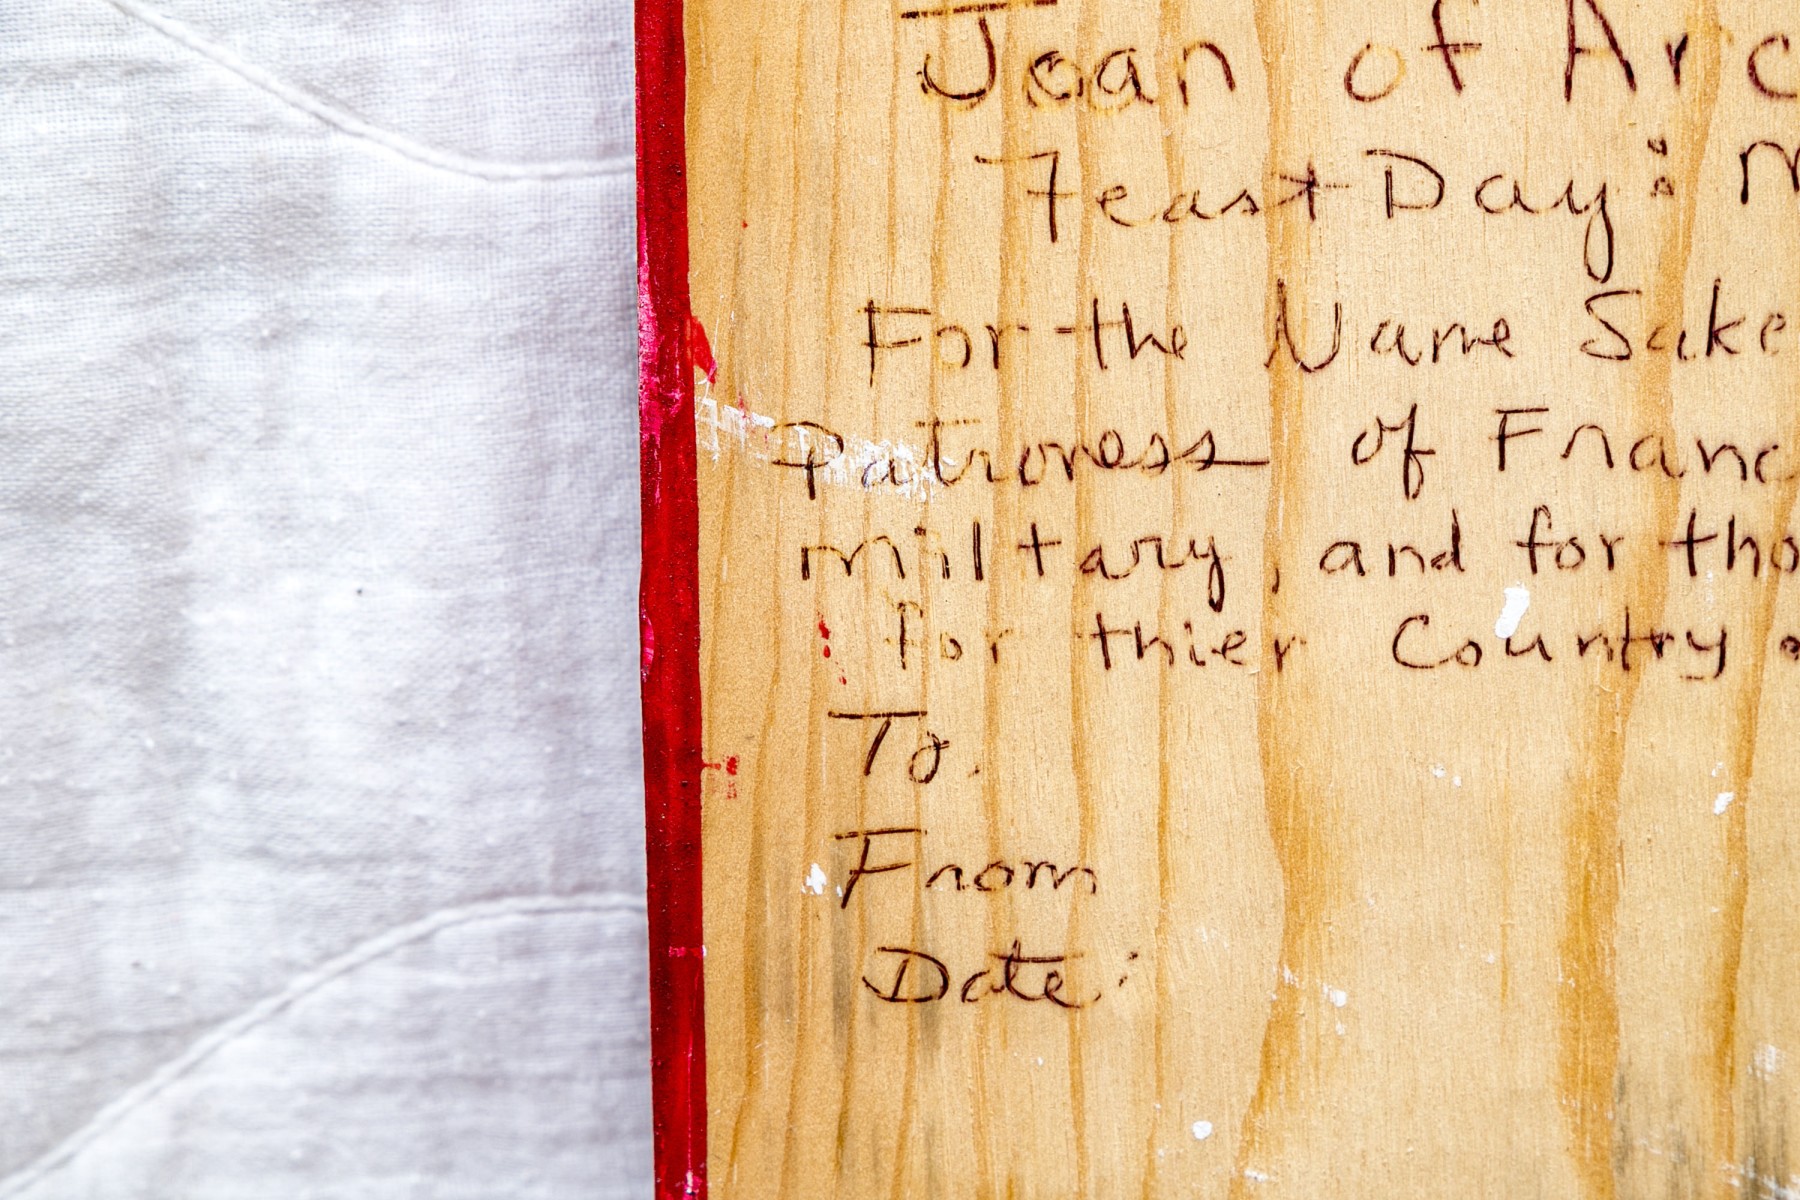 Joan of Arc
Feast Day: M
For the Name Sake
Patroness of Franc
military, and for tho
for thier Country
To.
From
Date: